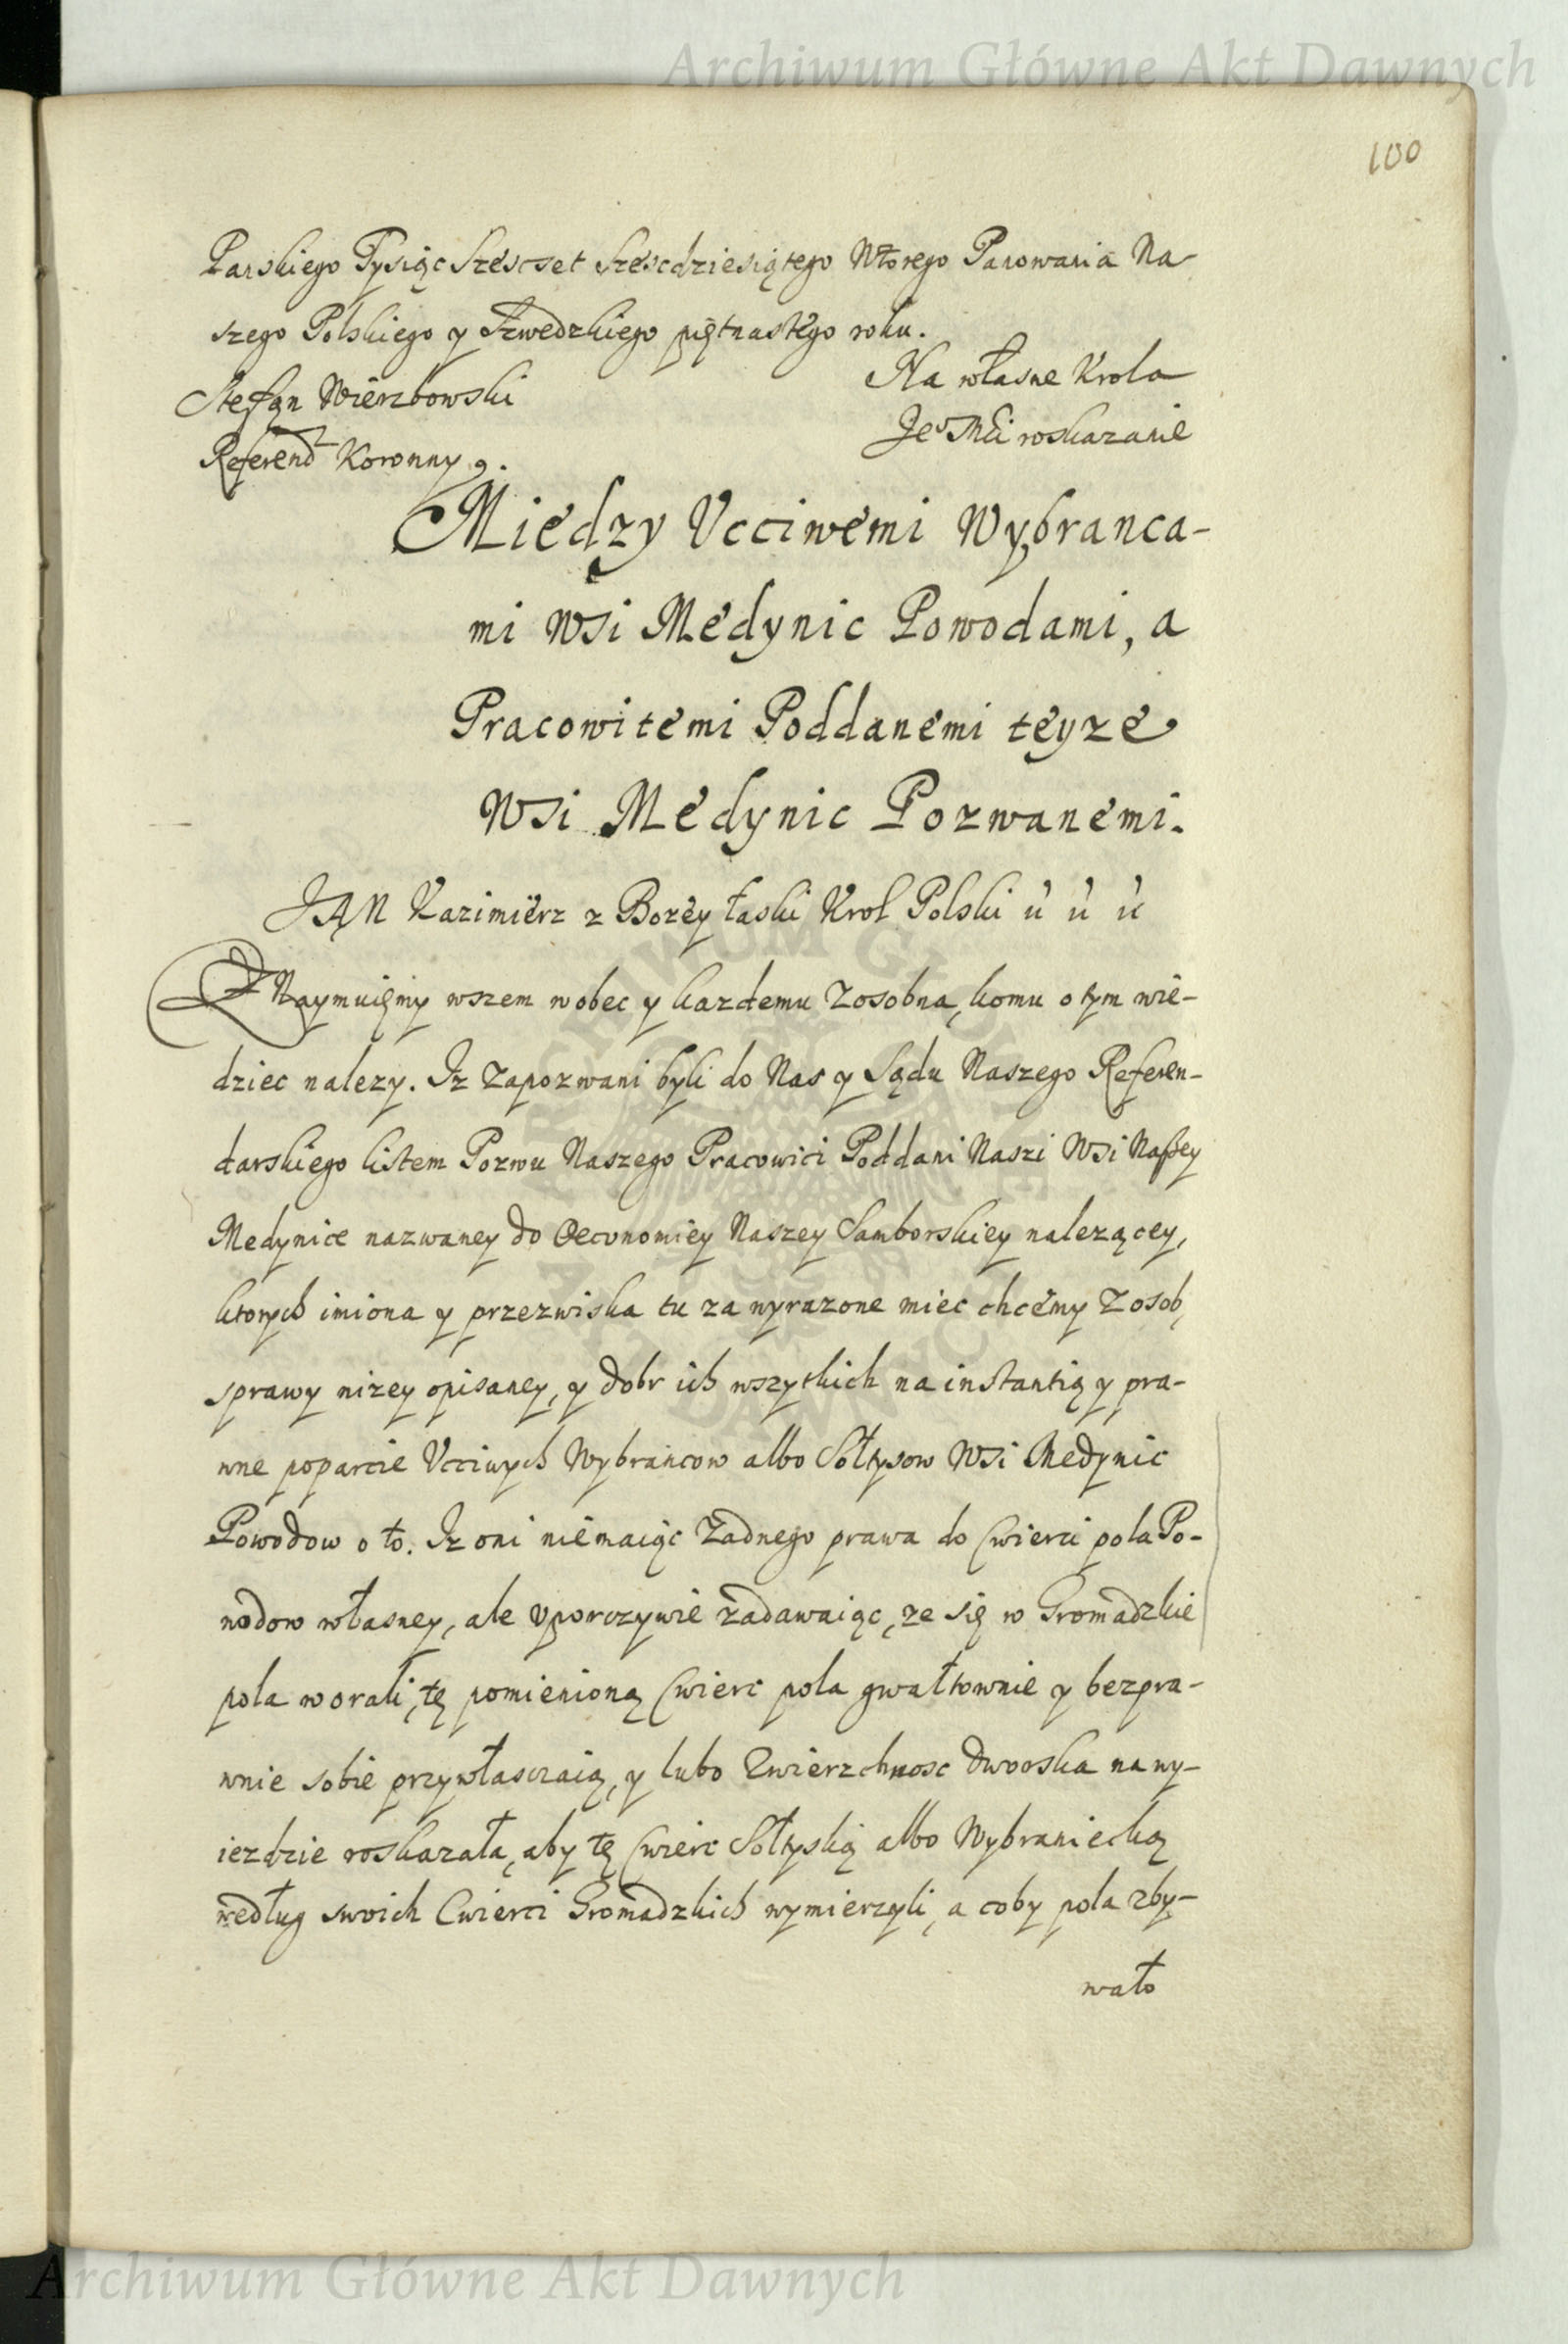 Archiwum Główne Akt Dawnych
100
Panskiego Tysiąc Szescset Szescdziesiątego Wtorego Panowania Na-
szego Polskiego y Szwedzkiego piętnastego roku.
Stefan Wierzbowski
Na własne Krola
Referend Koronny.
Je͠o Mći roskazanie
Między Vcciwemi Wybranca-
mi Wsi Medynic Powodami, a
Pracowitemi Poddanemi teyze
Wsi Medynic Pozwanemi.
JAN Kazimierz z Bozey łaski Krol Polski
Znaymuięmy wszem wobec y kazdemu zosobna, komu o tym wie-
dziec nalezy. Iz zapozwani byli do Nas y Sądu Naszego Referen-
darskiego listem Pozwu Naszego Pracowici Poddani Naszi Wsi Naßey
Medynice nazwaney do Oeconomiey Naszey Samborskiey nalezącey,
ktorych imiona y przezwiska tu za wyrazone miec chcemy z osob,
sprawy nizey opisaney, y dobr ich wszytkich na instantią y pra-
wne poparcie Vcciwych Wybrańcow albo Sołtysow Wsi Medynic
Powodow o to. Iz oni niemaiąc zadnego prawa do Cwierci pola Po-
wodow własney, ale vporczywie zadawaiąc, ze się w Gromadzkie
pola worali, tę pomienioną Cwierc pola gwałtownie y bezpra-
wnie sobie przywłasczaią, y lubo Zwierzchnosc dworska na wy-
iezdzie roskazała, aby tę Cwierc Sołtyską albo Wybraniecką
według swoich Cwierci Gromadzkich wymierzyli, a coby pola zby-
wało
Archiwum Główne Akt Dawnych